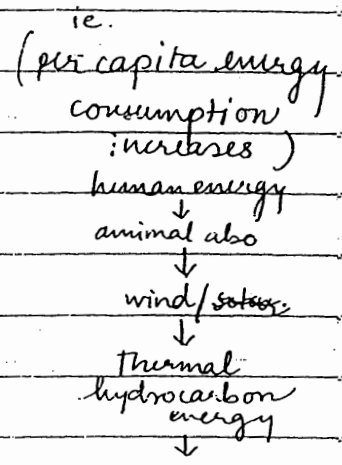 ie.
(per capita energy
consumption
increases)
human energy
↓
animal also
↓
wind/
↓
Thermal
hydrocarbon
energy
↓